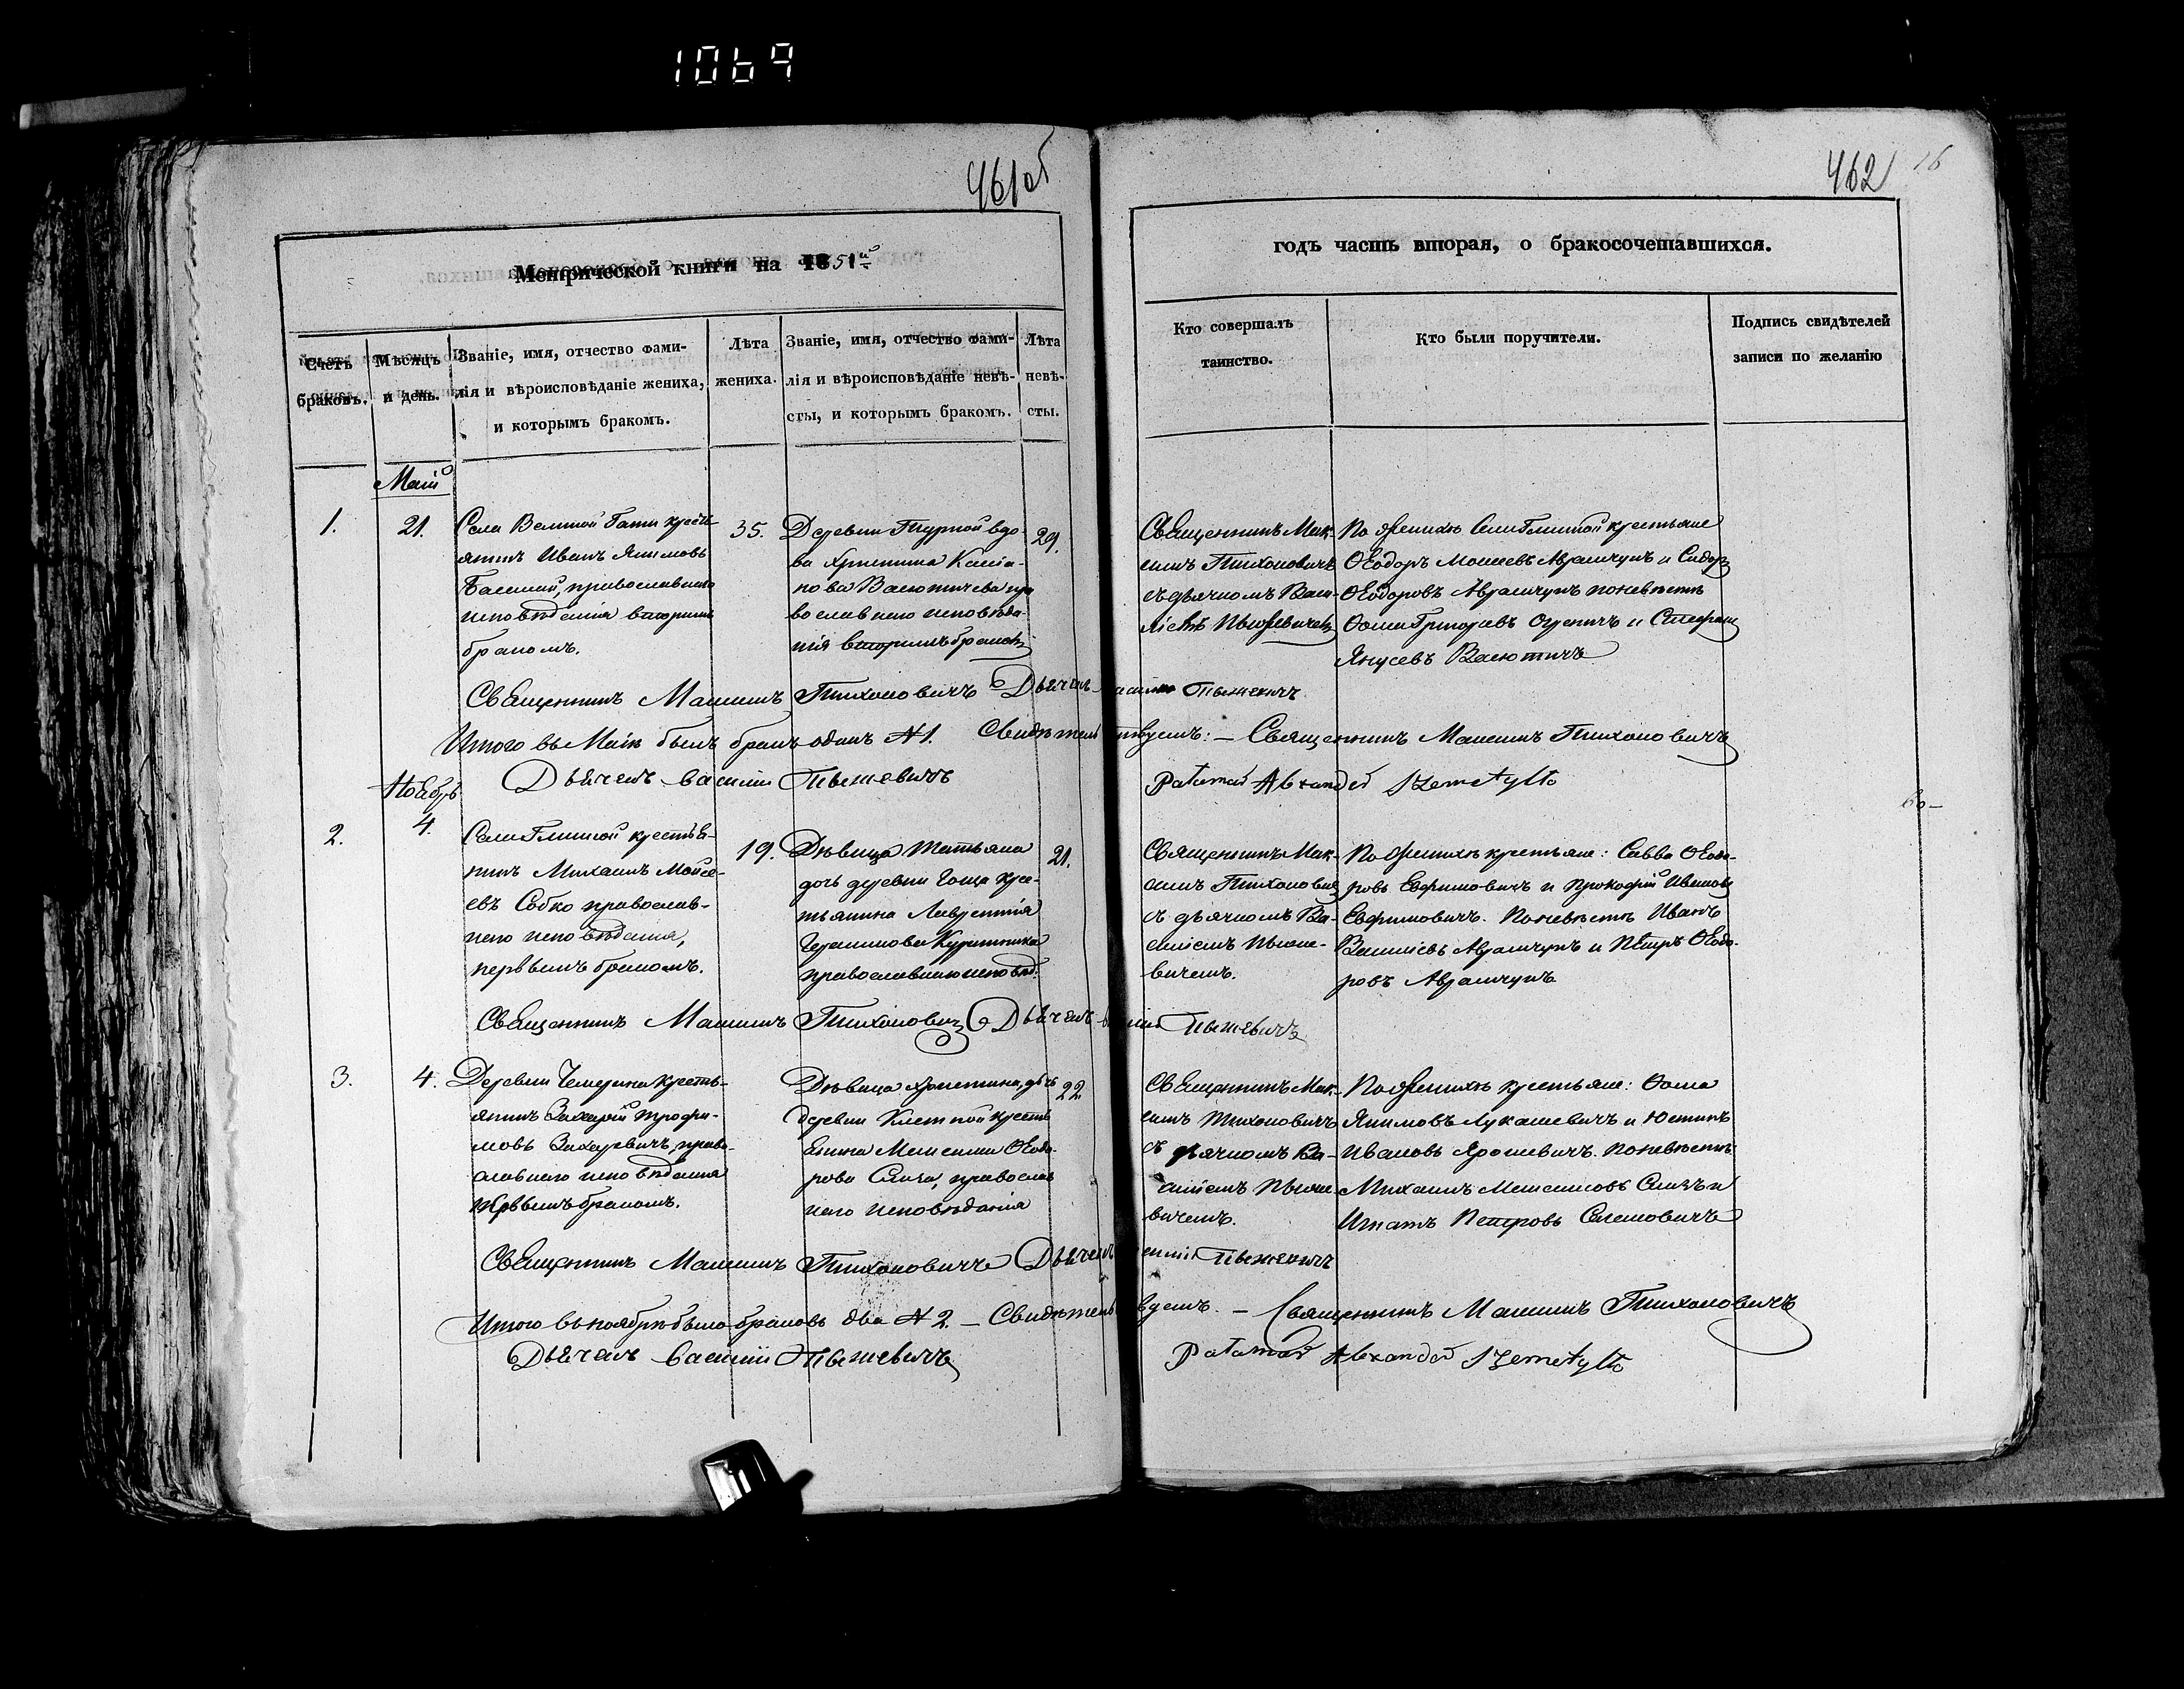 1069
461об
Метрической книги на 1851й
Счетъ браковъ.
Мѣсяцъ и день.
Званіе, имя, отчество фами-
лія и вѣроисповѣданіе жениха,
и которымъ бракомъ.
Лѣта
жениха.
Званіе, имя, отчество фами-
лія и вѣроисповѣданіе невѣ-
сты, и которымъ бракомъ.
Лѣта
невѣ-
сты.
Маій
1.
21.
Села Великой Гати кресть-
янинъ Иванъ Якимовъ
православнаго
исповѣданія вторымъ
бракомъ.
35.
Деревни вдо-
ва Христина Касія-
нова Васютичева пра
вославнаго исповѣда-
нія вторымъ бракомъ
29.
Священникъ Максимъ Тихоновичъ Дьячекъ Василій Пыжевичъ
Итого въ Маіи былъ бракъ одинъ N 1. Свидѣтельствуемъ: — Священникъ Максимъ Тихоновичъ
Дьячекъ Василій Пыжевичъ
Ноябрь
2.
4.
Села Глинной крестья-
нинъ Михаилъ Мойсе-
евъ Собко православ-
наго исповѣданія,
первымъ бракомъ.
19.
Дѣвица Татьяна
дочь деревни Гоща крес-
тьянина Лаврентія
Герасимова
православнаго исповѣд.
21.
Священникъ Максимъ Тихоновичъ Дьячекъ Василій Пыжевичъ
3.
4.
Деревни Чемерина кресть-
янинъ Захарій Трофи-
мовъ Захаревичъ, право-
славнаго исповѣданія
первымъ бракомъ.
Дѣвица Христина, дочь
деревни Клетной кресть
янина Максима Ѳеодо-
рова православ
наго исповѣданія
22.
Священникъ Максимъ Тихоновичъ Дьячекъ Василій Пыжевичъ
Итого въ ноябрѣ было браковъ два N 2. — Свидѣтельствуемъ. — Священникъ Максимъ Тихоновичъ
Дьячекъ Василій Пыжевичъ
462
16
годъ часть вторая, о бракосочетавшихся.
Кто совершалъ
таинство.
Кто были поручители.
Подпись свидѣтелей
записи по желанію
Священникъ Мак-
симъ Тихоновичъ
съ дьячкомъ Васи-
ліемъ Пыжевичемъ
По женихѣ Села Глинной крестьяне
Ѳеодоръ Моисеевъ Абрамчукъ и Сидоръ
Ѳеодоровъ Абрамчукъ по невѣстѣ
Ѳома Григорьевъ и Стефанъ
Янусевъ Васютичъ
Patamar Alexander Szemetyłło
Священникъ Мак-
симъ Тихоновичъ
съ дьячкомъ Ва-
силіемъ Пыже-
вичемъ.
По женихѣ крестьяне: Савва Ѳеодо-
ровъ Евфимовичъ и Прокофій Ивановъ
Евфимовичъ. По невѣстѣ Иванъ
Василіевъ Абрамчукъ и Петръ Ѳеодо-
ровъ Абрамчукъ
Священникъ Мак-
симъ Тихоновичъ
съ дьячкомъ Ва-
силіемъ Пыже-
вичемъ.
По женихѣ крестьяне: Ѳома
Якимовъ Лукашевичъ и Юстинъ
Ивановъ Ярошевичъ. По невѣстѣ
Михаилъ Максимовъ и
Игнатъ Петровъ
Patamar Alexander Szemetyłło